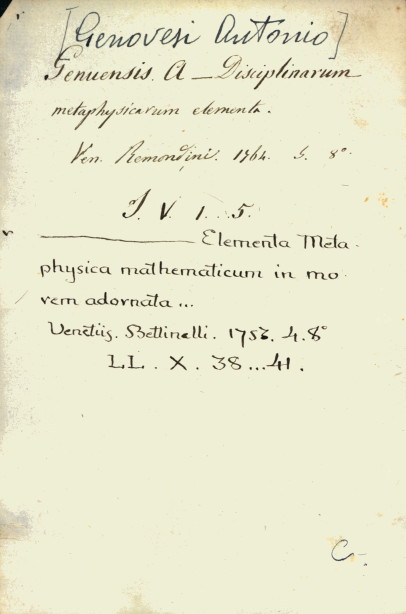 [Genovesi Antonio]
Genuensis. A — Disciplinarum
metaphysicarum elementa.
Ven. Remondini. 1764. 5. 8°
I. V. 1...5.
——— Elementa Meta-
physica mathematicum in mo-
rem adornata...
Venetiis. Bettinelli. 1753. 4. 8°
LL. X. 38...41.
C.